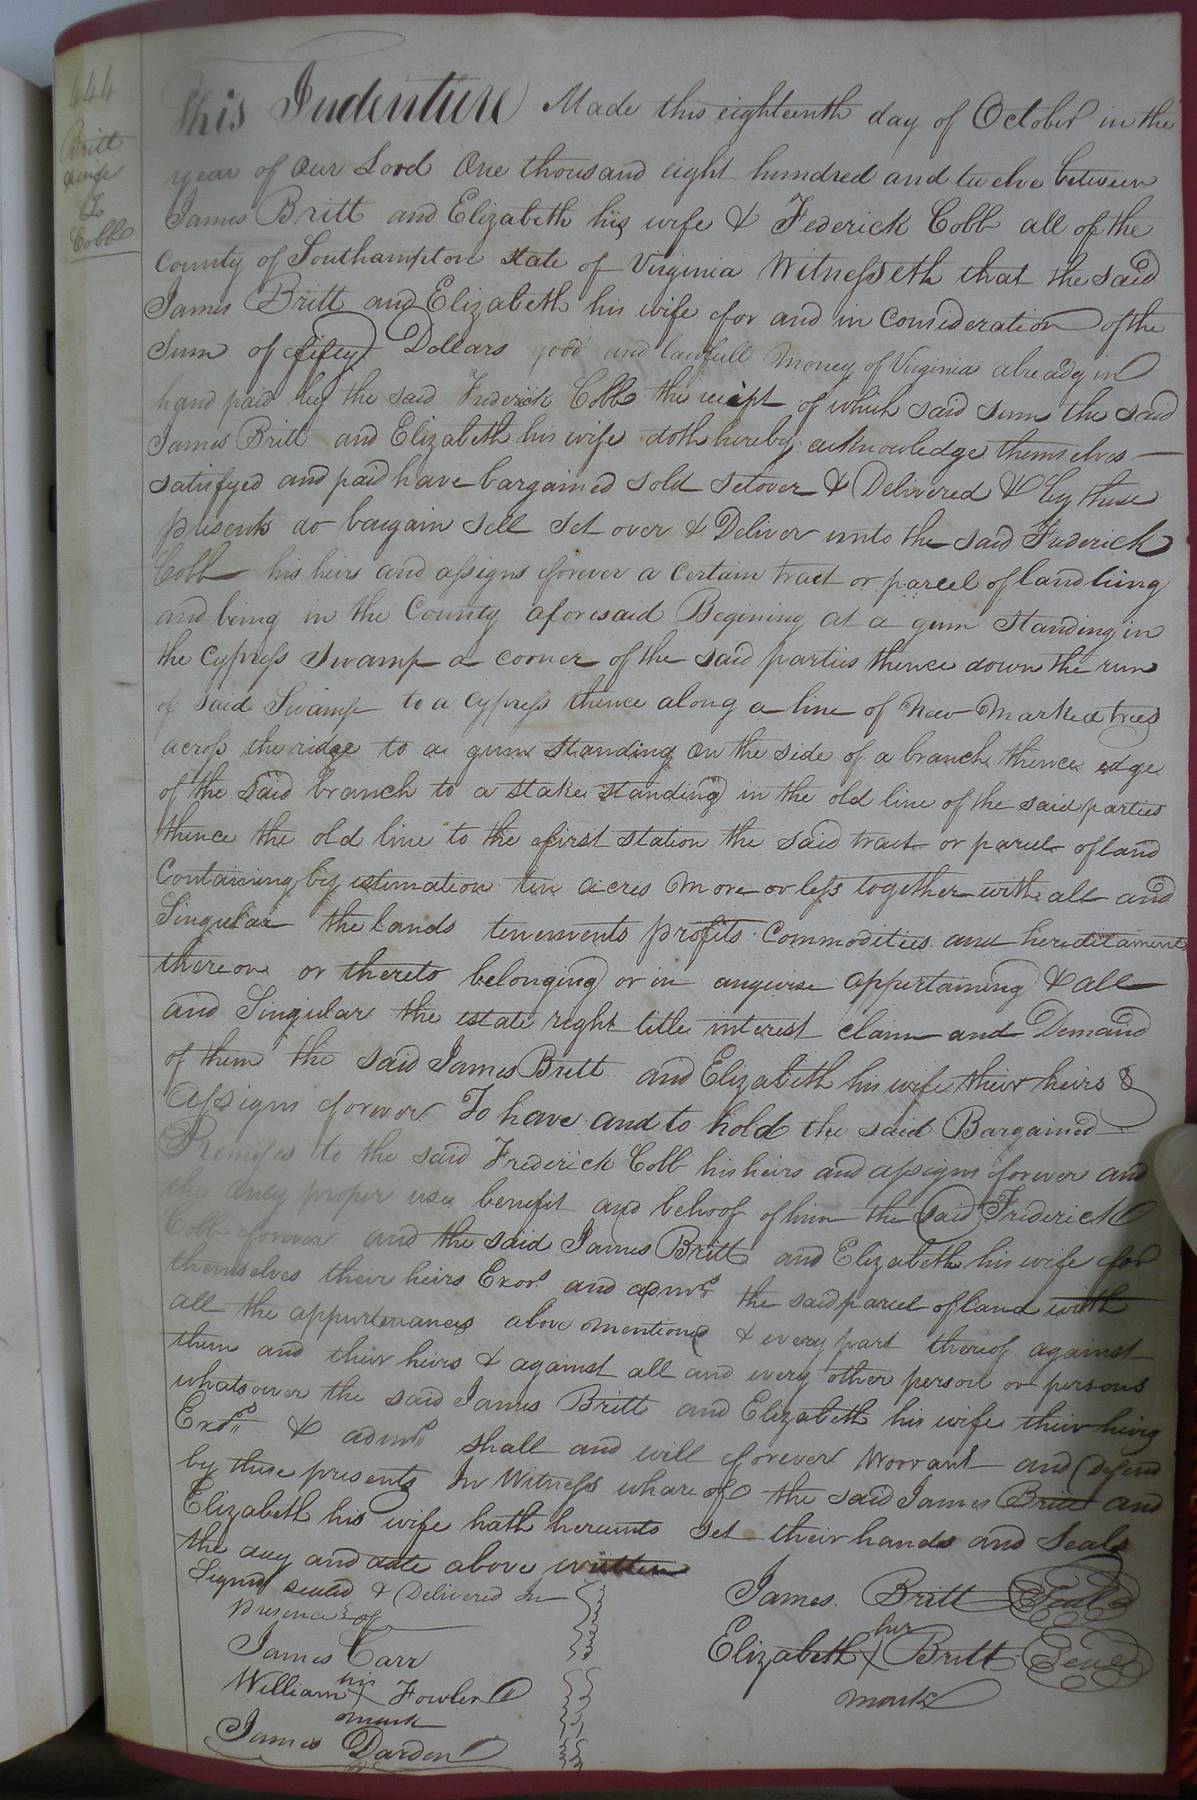 444
Britt
& wife
To
Cobb
This Indenture Made this eighteenth day of October in the
year of our Lord One thousand eight hundred and twelve between
James Britt and Elizabeth his wife & Federick Cobb all of the
County of Southampton state of Virginia Witnesseth that the said
James Britt and Elizabeth his wife for and in Consideration of the
Sum of fifty Dollars good and lawfull Money of Virginia already in
hand paid by the said Frederick Cobb the reciept of which said sum the said
James Britt and Elizabeth his wife doth hereby acknowledge themselves
satisfyed and paid have bargained sold setover & Delivered & by these
presents do bargain sell set over & Deliver unto the said Frederick
Cobb his heirs and assigns forever a certain tract or parcel of land liing
and being in the County aforesaid Begining at a gum standing in
the cypress swamp a corner of the said parties thence down the run
of said Swamp to a cypress thence along a line of New Marked trees
across the ridge to a gum standing on the side of a branch thence edge
of the said branch to a stake standing in the old line of the said parties
thence the old line to the first station the said tract or parcel of land
Containing by estimation ten acres more or less together with all and
Singular the lands tenements profits Commodities and hereditaments
thereon or thereto belonging or in anywise appertaining & all
and Singular the estate right title interest claim and Demand
of them the said James Britt and Elizabeth his wife their heirs &
Assigns forever To have and to hold the said Bargained
Premises to the said Frederick Cobb his heirs and assigns forever and
the only proper use benefit and behoof of him the said Frederick
Cobb forever and the said James Britt and Elizabeth his wife for
themselves their heirs Exors and admrs the said parcel of land with
all the appurtenances above mentioned & every part thereof against
them and their heirs & against all and every other person or persons
whatsoever the said James Britt and Elizabeth his wife their heirs
Exors & admrs shall and will forever Worrant and Defend
by these presents In Witness whareof the said James Britt and
Elizabeth his wife hath hereunto set their hands and Seals
the day and date above written
Signd sealed & Delivered In
presence of
James Britt Seal
James Carr
her
Elizabeth X Britt Seal
mark
his
William X Fowler
mark
James Dardon